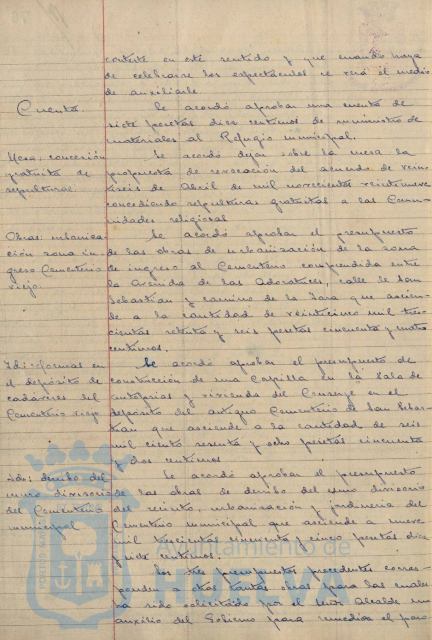 conteste en este sentido y que cuando haya
de celebrarse los espectáculos se verá el medio
de auxiliarle.
Cuenta. Se acordó aprobar una cuenta de
siete pesetas diez centimos de suministro de
materiales al Refugio municipal.
Mesa: concesión Se acordó dejar sobre la mesa la
gratuita de propuesta de revocación del acuerdo de vein
sepulturas. tiseis de Abril de mil novecientos veintinueve
concediendo sepulturas gratuitas a las Comu-
nidades religiosas
Obras: urbaniza Se acordó aprobar el presupuesto
ción zona in de las obras de urbanización de la zona
greso Cementerio de ingreso al Cementerio comprendida entre
viejo. la Avenida de las Adoratrices, calle de San
Sebastian y camino de la que ascien-
de a la cantidad de veinticinco mil tres-
cientas setenta y seis pesetas cincuenta y cuatro
centimos.
Idi: formas en Se acordó aprobar el presupuesto de
el depósito de construcción de una Capilla en la Sala de
cadáveres del autopsias y vivienda del Conserje en el
Cementerio viejo depósito del antiguo Cementerio de San Sebas-
tian que asciende a la cantidad de seis
mil ciento sesenta y ocho pesetas cincuenta
y dos centimos
Ido: derribo del Se acordó aprobar el presupuesto
muro divisorio de las obras de derribo del muro divisorio
del Cementerio del recinto, urbanización y jardineria del
municipal Cementerio municipal que asciende a nueve
mil trescientas cincuenta y cinco pesetas diez
y siete centimos.
Los tres presupuestos precedentes corres-
ponden a otras tantas obras para las cuales
ha sido solicitado por el señor Alcalde un
auxilio del Gobierno para remediar el paro
Ayuntamiento de
HUELVA